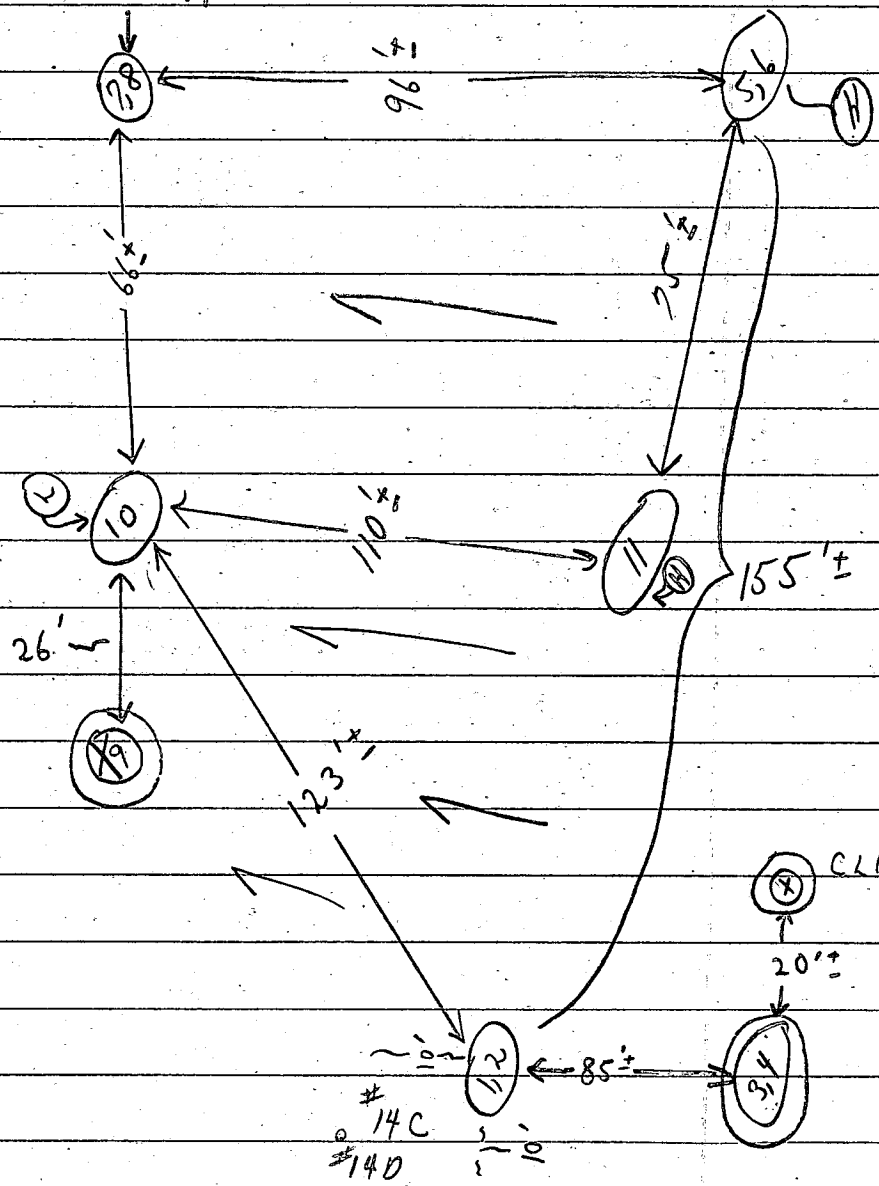 7,8
96'±
5,6
H
66'±
75'±
10
110'±
11
H
155'±
26'
9
123'±
X
20'±
~10'~
1,2
85'±
3,4
#14C
#14D
~10'